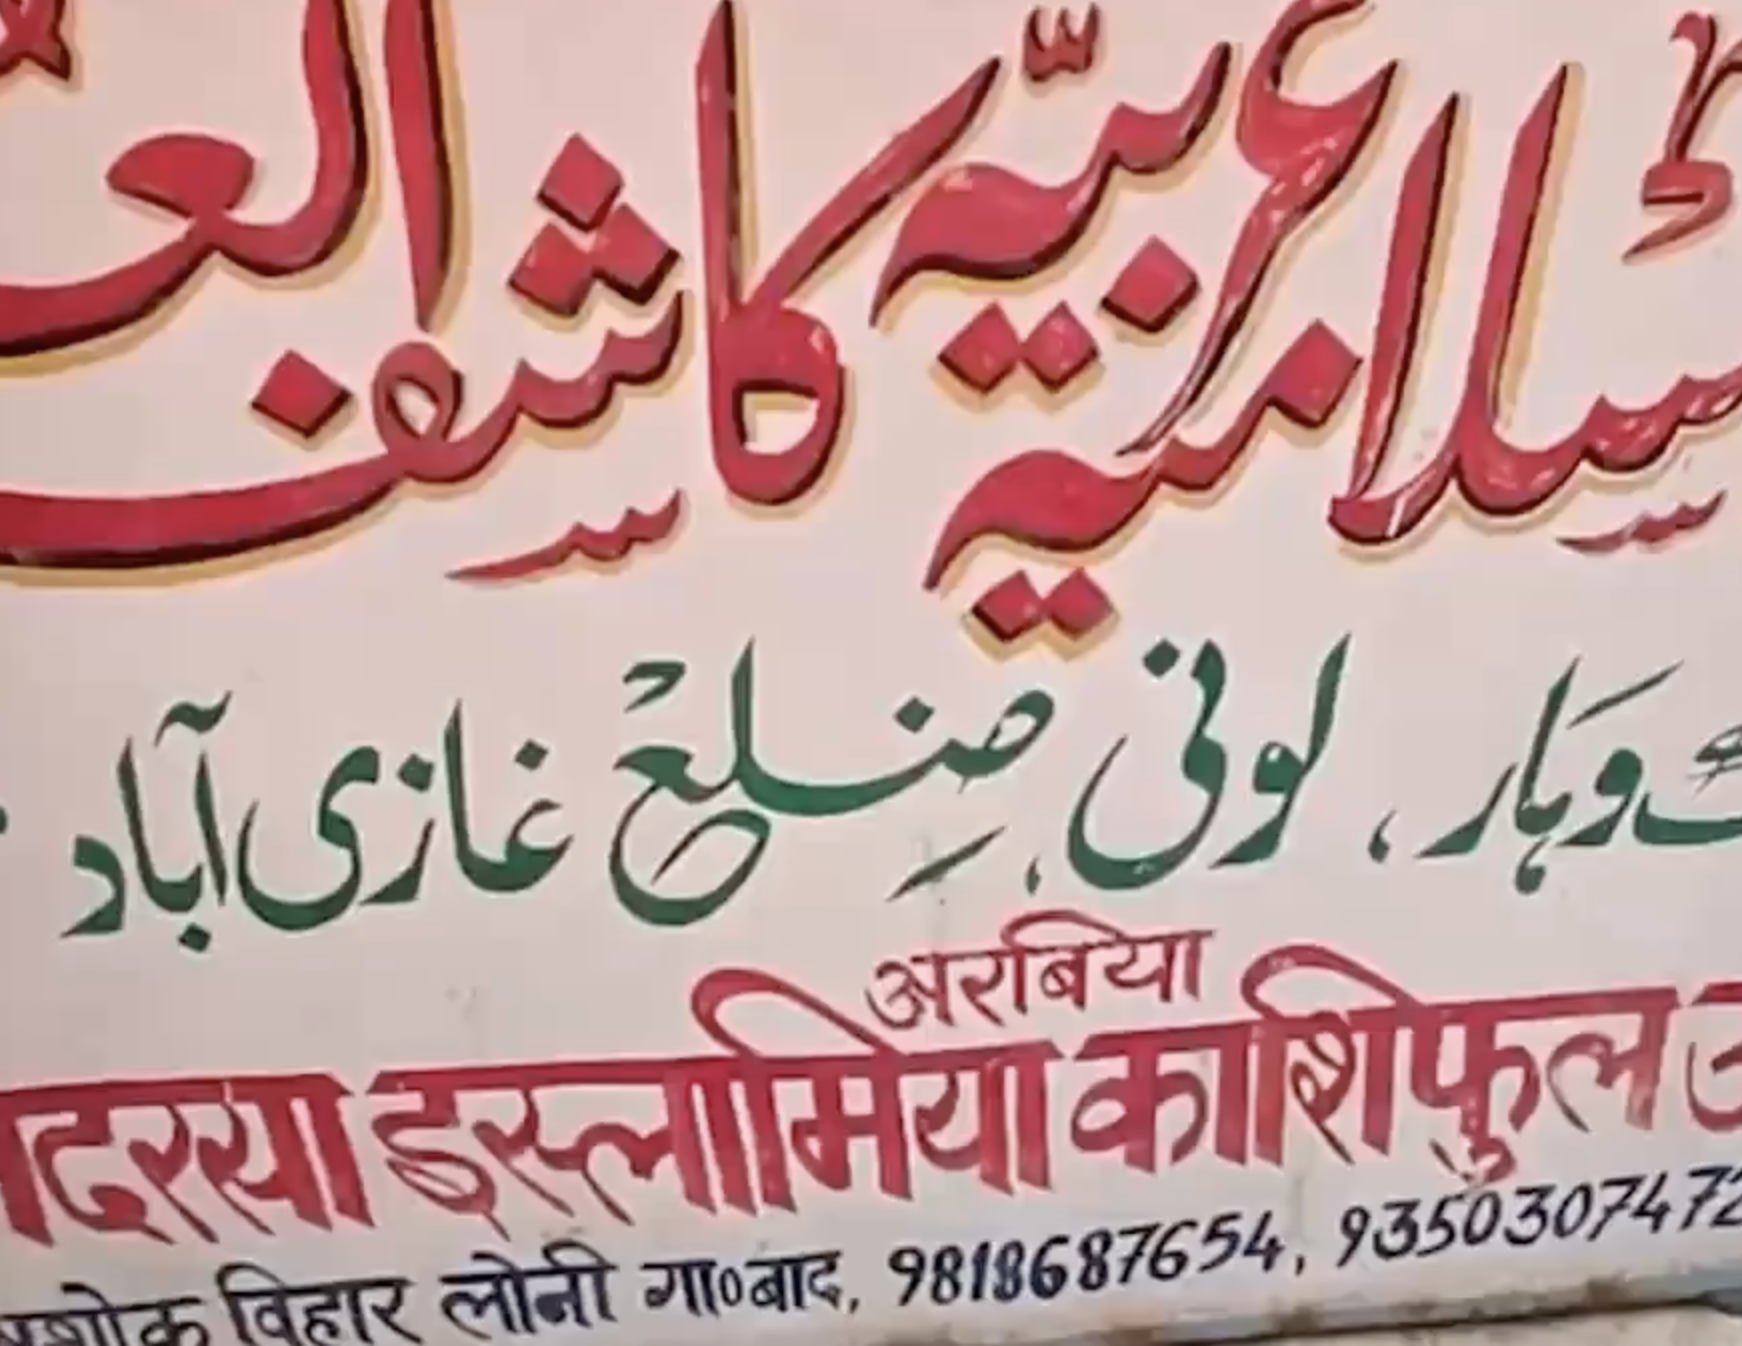 سلامیہ عربیہ کاشف الع
وہار، لونی، ضلع غازی آباد
अरबिया
मदरसा इस्लामिया काशिफुल उ
अशोक विहार लोनी गा०बाद, 9818687654, 9350307472